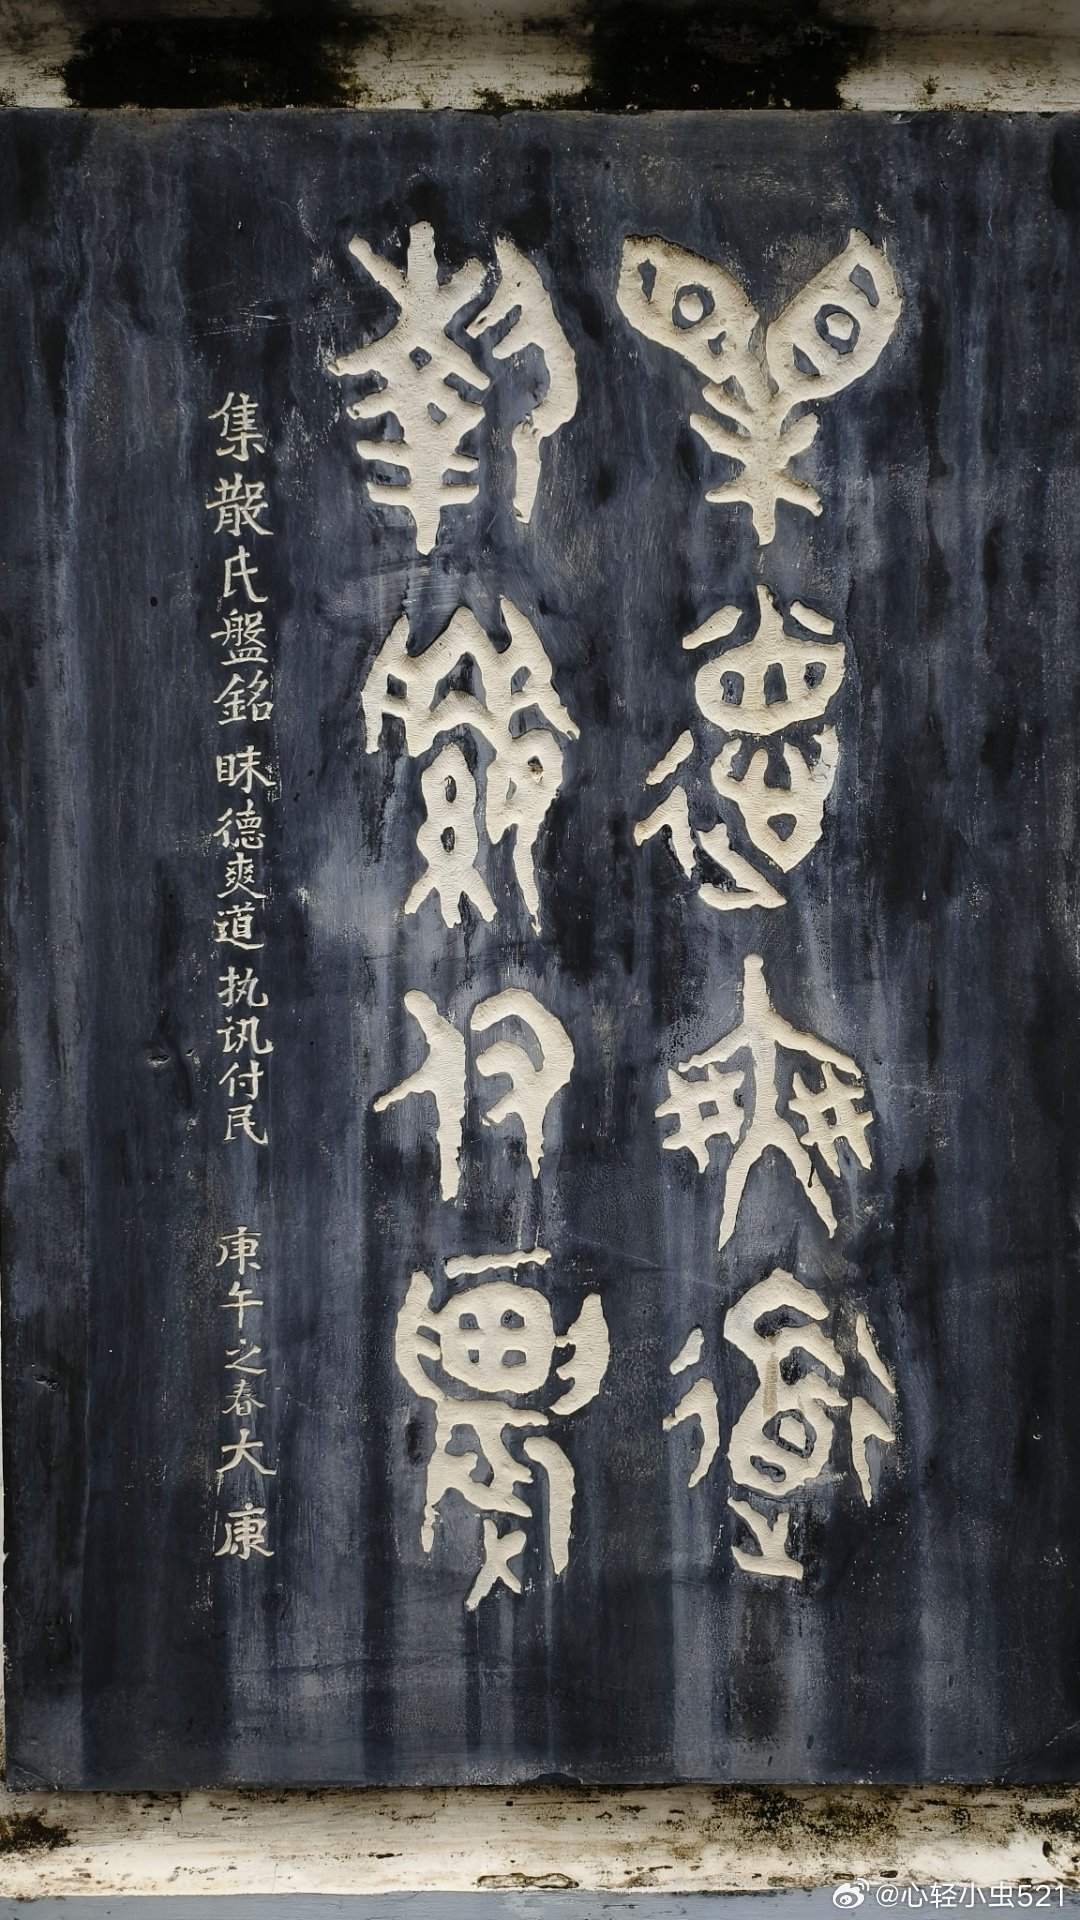 眜德爽道
执讯付民
集散氏盤銘 眜德爽道 执讯付民 庚午之春大康
@心轻小虫521